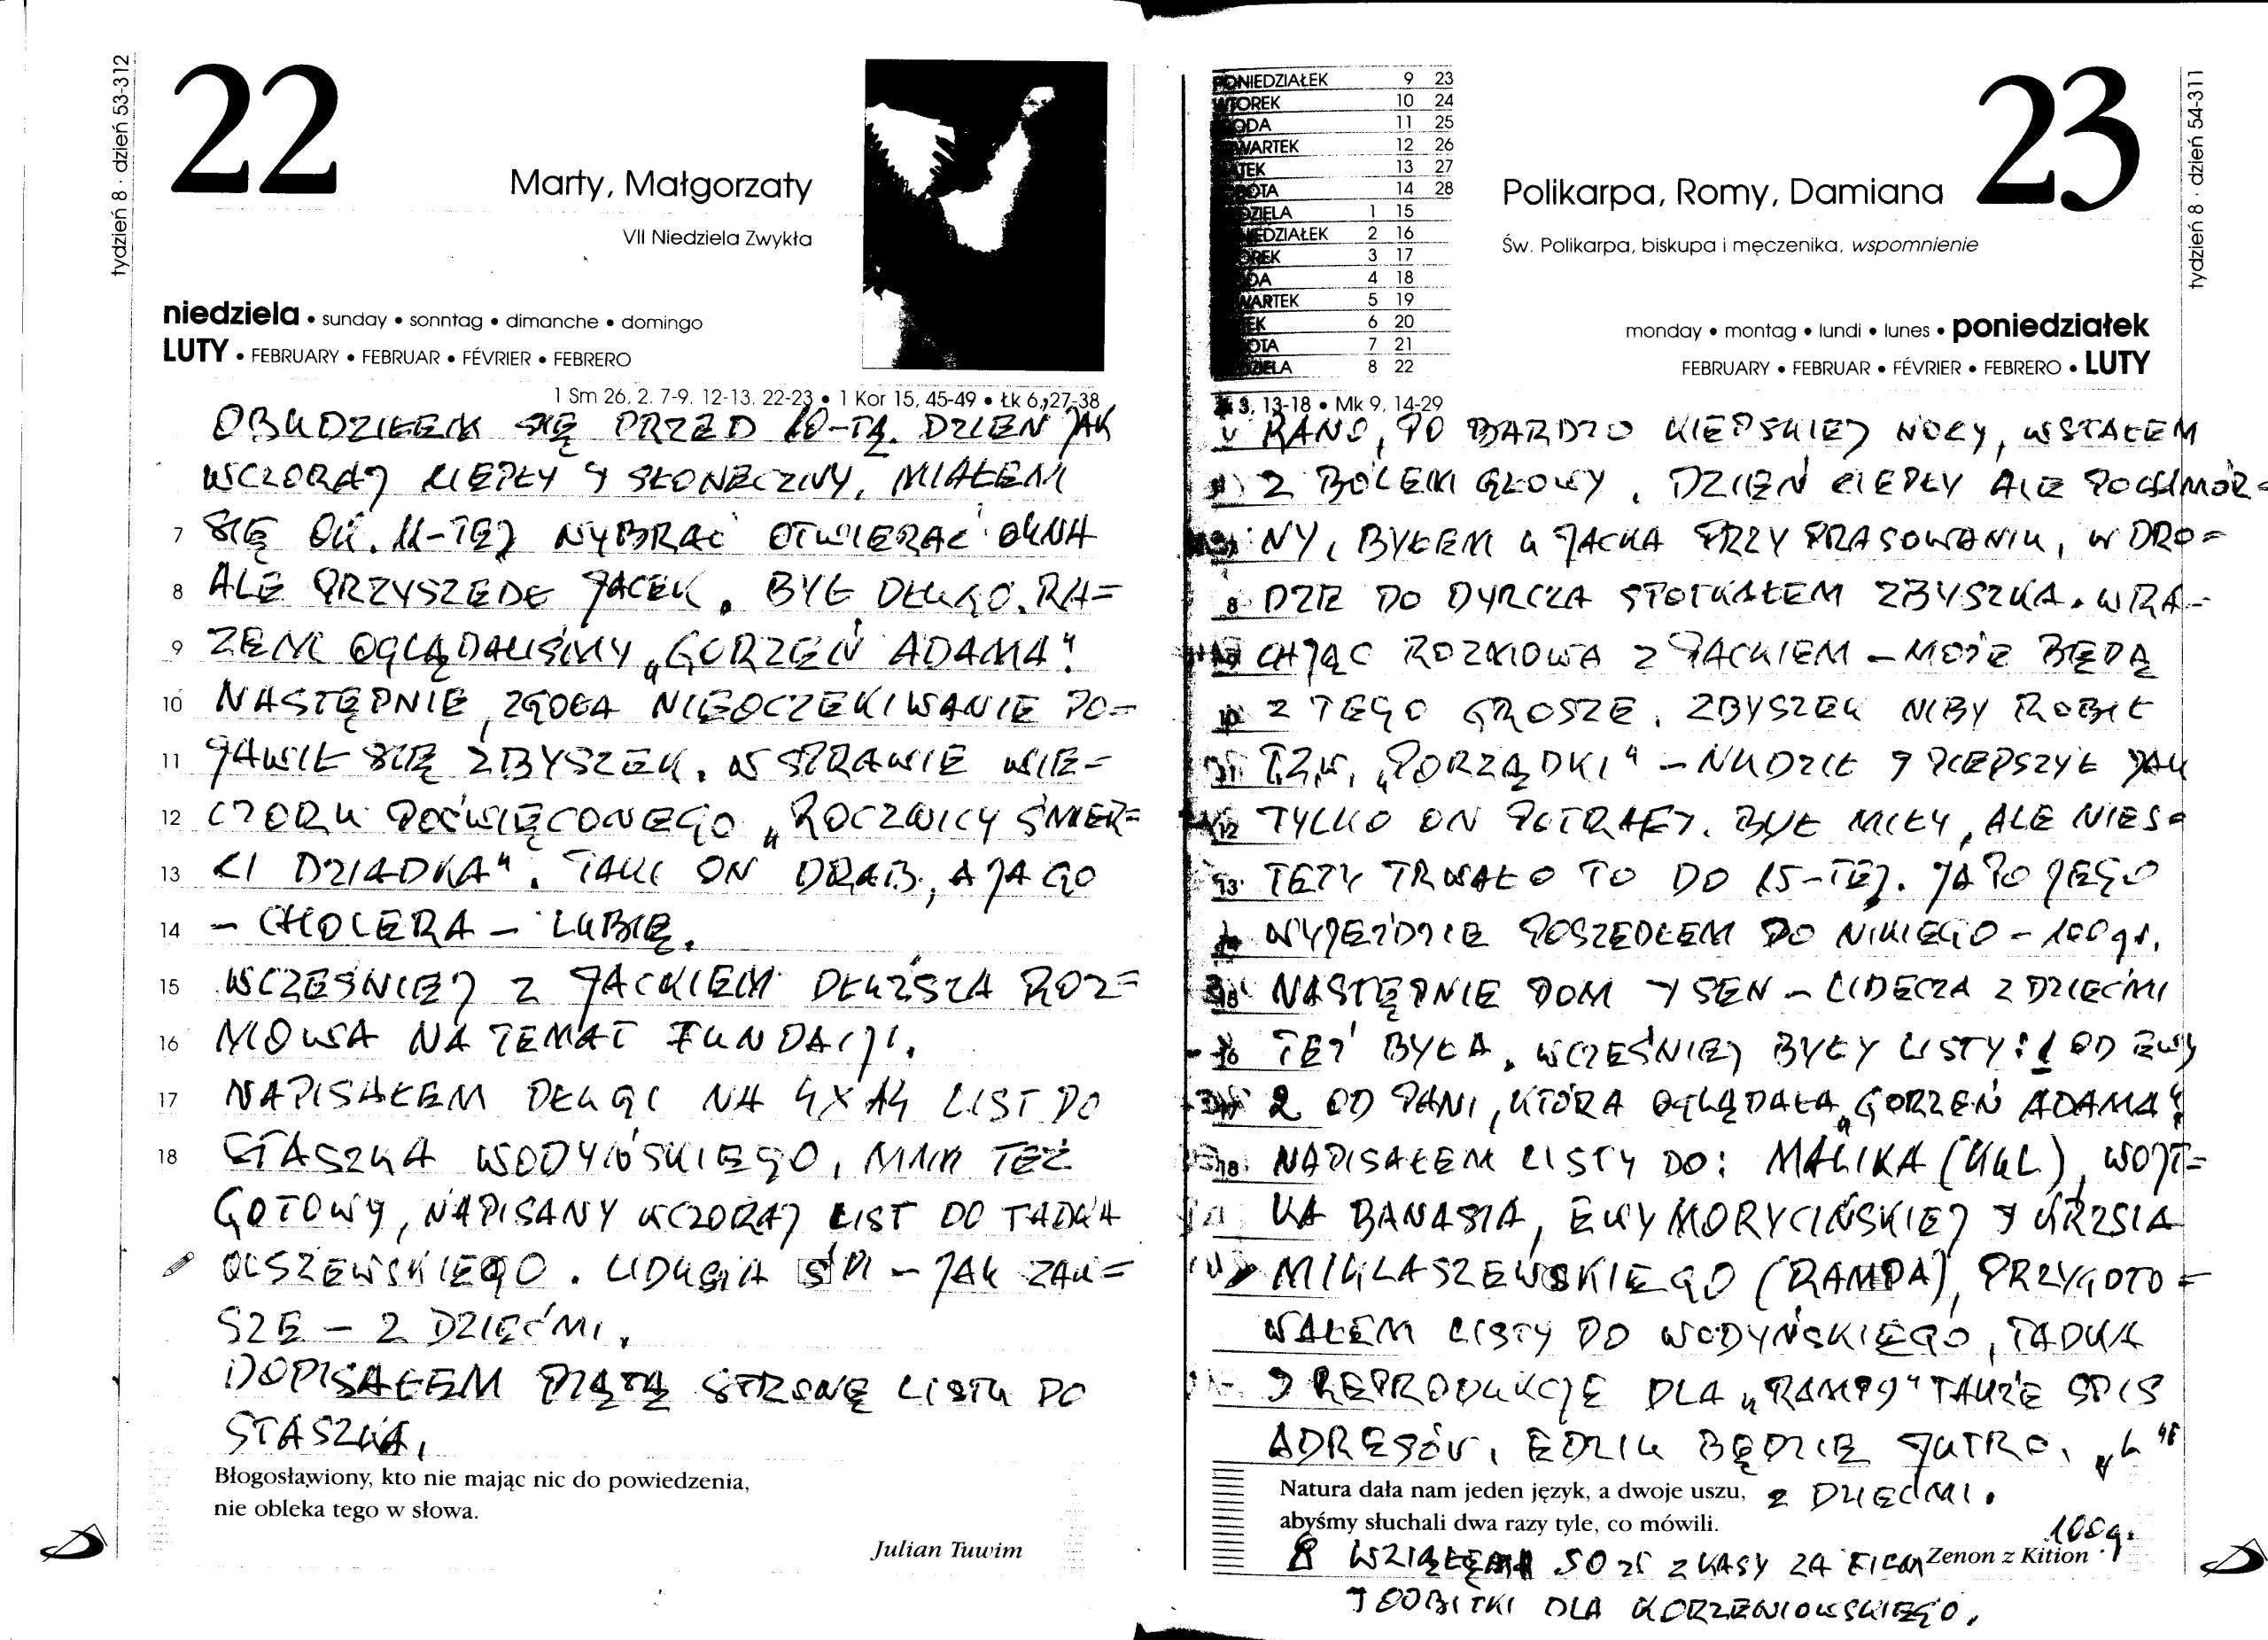 tydzień 8 · dzień 53-312
22
Marty, Małgorzaty
VII Niedziela Zwykła
niedziela • sunday • sonntag • dimanche • domingo
LUTY • FEBRUARY • FEBRUAR • FÉVRIER • FEBRERO
1 Sm 26, 2. 7-9. 12-13. 22-23 • 1 Kor 15, 45-49 • Łk 6, 27-38
OBUDZIŁEM SIĘ PRZED 10-TĄ. DZIEŃ JAK
WCZORAJ CIEPŁY I SŁONECZNY. MIAŁEM
7 SIĘ OK. 11-TEJ WYBRAĆ OTWIERAĆ OKNA
8 ALE PRZYSZEDŁ JACEK. BYŁ DŁUGO. RA=
9 ZEM OGLĄDALIŚMY „GORZEŃ ADAMA".
10 NASTĘPNIE, ZGOŁA NIEOCZEKIWANIE PO=
11 JAWIŁ SIĘ ZBYSZEK. W SPRAWIE WIE=
12 CZORU POŚWIĘCONEGO „ROCZNICY ŚMIER=
13 CI DZIADKA". TAKI ON DRAB, A JA GO
14 – CHOLERA – LUBIĘ.
15 WCZEŚNIEJ Z JACKIEM DŁUŻSZA ROZ=
16 MOWA NA TEMAT FUNDACJI.
17 NAPISAŁEM DŁUGI NA 4 X A4 LIST DO
18 STASZKA WODYŃSKIEGO, MAM TEŻ
GOTOWY, NAPISANY WCZORAJ LIST DO TADKA
OLSZEWSKIEGO. LIDUSIA ŚPI – JAK ZAW=
SZE – Z DZIEĆMI.
DOPISAŁEM PIĄTĄ STRONĘ LISTU DO
STASZKA.
Błogosławiony, kto nie mając nic do powiedzenia,
nie obleka tego w słowa.
Julian Tuwim
PONIEDZIAŁEK 9 23
WTOREK 10 24
ODA 11 25
WARTEK 12 26
ĄTEK 13 27
OTA 14 28
DZIELA 1 15
EDZIAŁEK 2 16
OREK 3 17
DA 4 18
WARTEK 5 19
EK 6 20
OTA 7 21
DZIELA 8 22
tydzień 8 · dzień 54-311
23
Polikarpa, Romy, Damiana
Św. Polikarpa, biskupa i męczenika, wspomnienie
monday • montag • lundi • lunes • poniedziałek
FEBRUARY • FEBRUAR • FÉVRIER • FEBRERO • LUTY
3, 13-18 • Mk 9, 14-29
RANO, PO BARDZO KIEPSKIEJ NOCY, WSTAŁEM
Z BÓLEM GŁOWY. DZIEŃ CIEPŁY ALE POCHMUR=
NY. BYŁEM U JACKA PRZY PRASOWANIU, W DRO=
8 DZE DO DYRCZA SPOTKAŁEM ZBYSZKA. WRA-
9 CAJĄC ROZMOWA Z JACKIEM – MOŻE BĘDĄ
10 Z TEGO GROSZE. ZBYSZEK NIBY ROBIŁ
11 TZW. „PORZĄDKI" – NUDZIŁ I PIEPSZYŁ JAK
12 TYLKO ON POTRAFI. BYŁ MIŁY, ALE NIES=
13 TETY TRWAŁO TO DO 15-TEJ. JA PO JEGO
14 WYJEŹDZIE POSZEDŁEM DO NIKIEGO – 100 gr.
15 NASTĘPNIE DOM I SEN – LIDECZA Z DZIEĆMI
16 TEŻ BYŁA. WCZEŚNIEJ BYŁY LISTY: 1 OD EWY
2 OD PANI, KTÓRA OGLĄDAŁA „GORZEŃ ADAMA".
18 NAPISAŁEM LISTY DO: MALIKA (KUL), WOJT=
KA BANASIA, EWY MORYCIŃSKIEJ I KRZSIA
MIKLASZEWSKIEGO (RAMPA), PRZYGOTO=
WAŁEM LISTY DO WODYŃSKIEGO, TADKA
I REPRODUKCJE DLA „RAMPY" TAKŻE SPIS
ADRESÓW. EDZIU BĘDZIE JUTRO. „L"
Z DZIEĆMI.
Natura dała nam jeden język, a dwoje uszu,
abyśmy słuchali dwa razy tyle, co mówili.
100 g.
Zenon z Kition
WZIĄŁEM 50 ZŁ Z KASY ZA FILM
I ODBITKI DLA KORZENIOWSKIEGO.